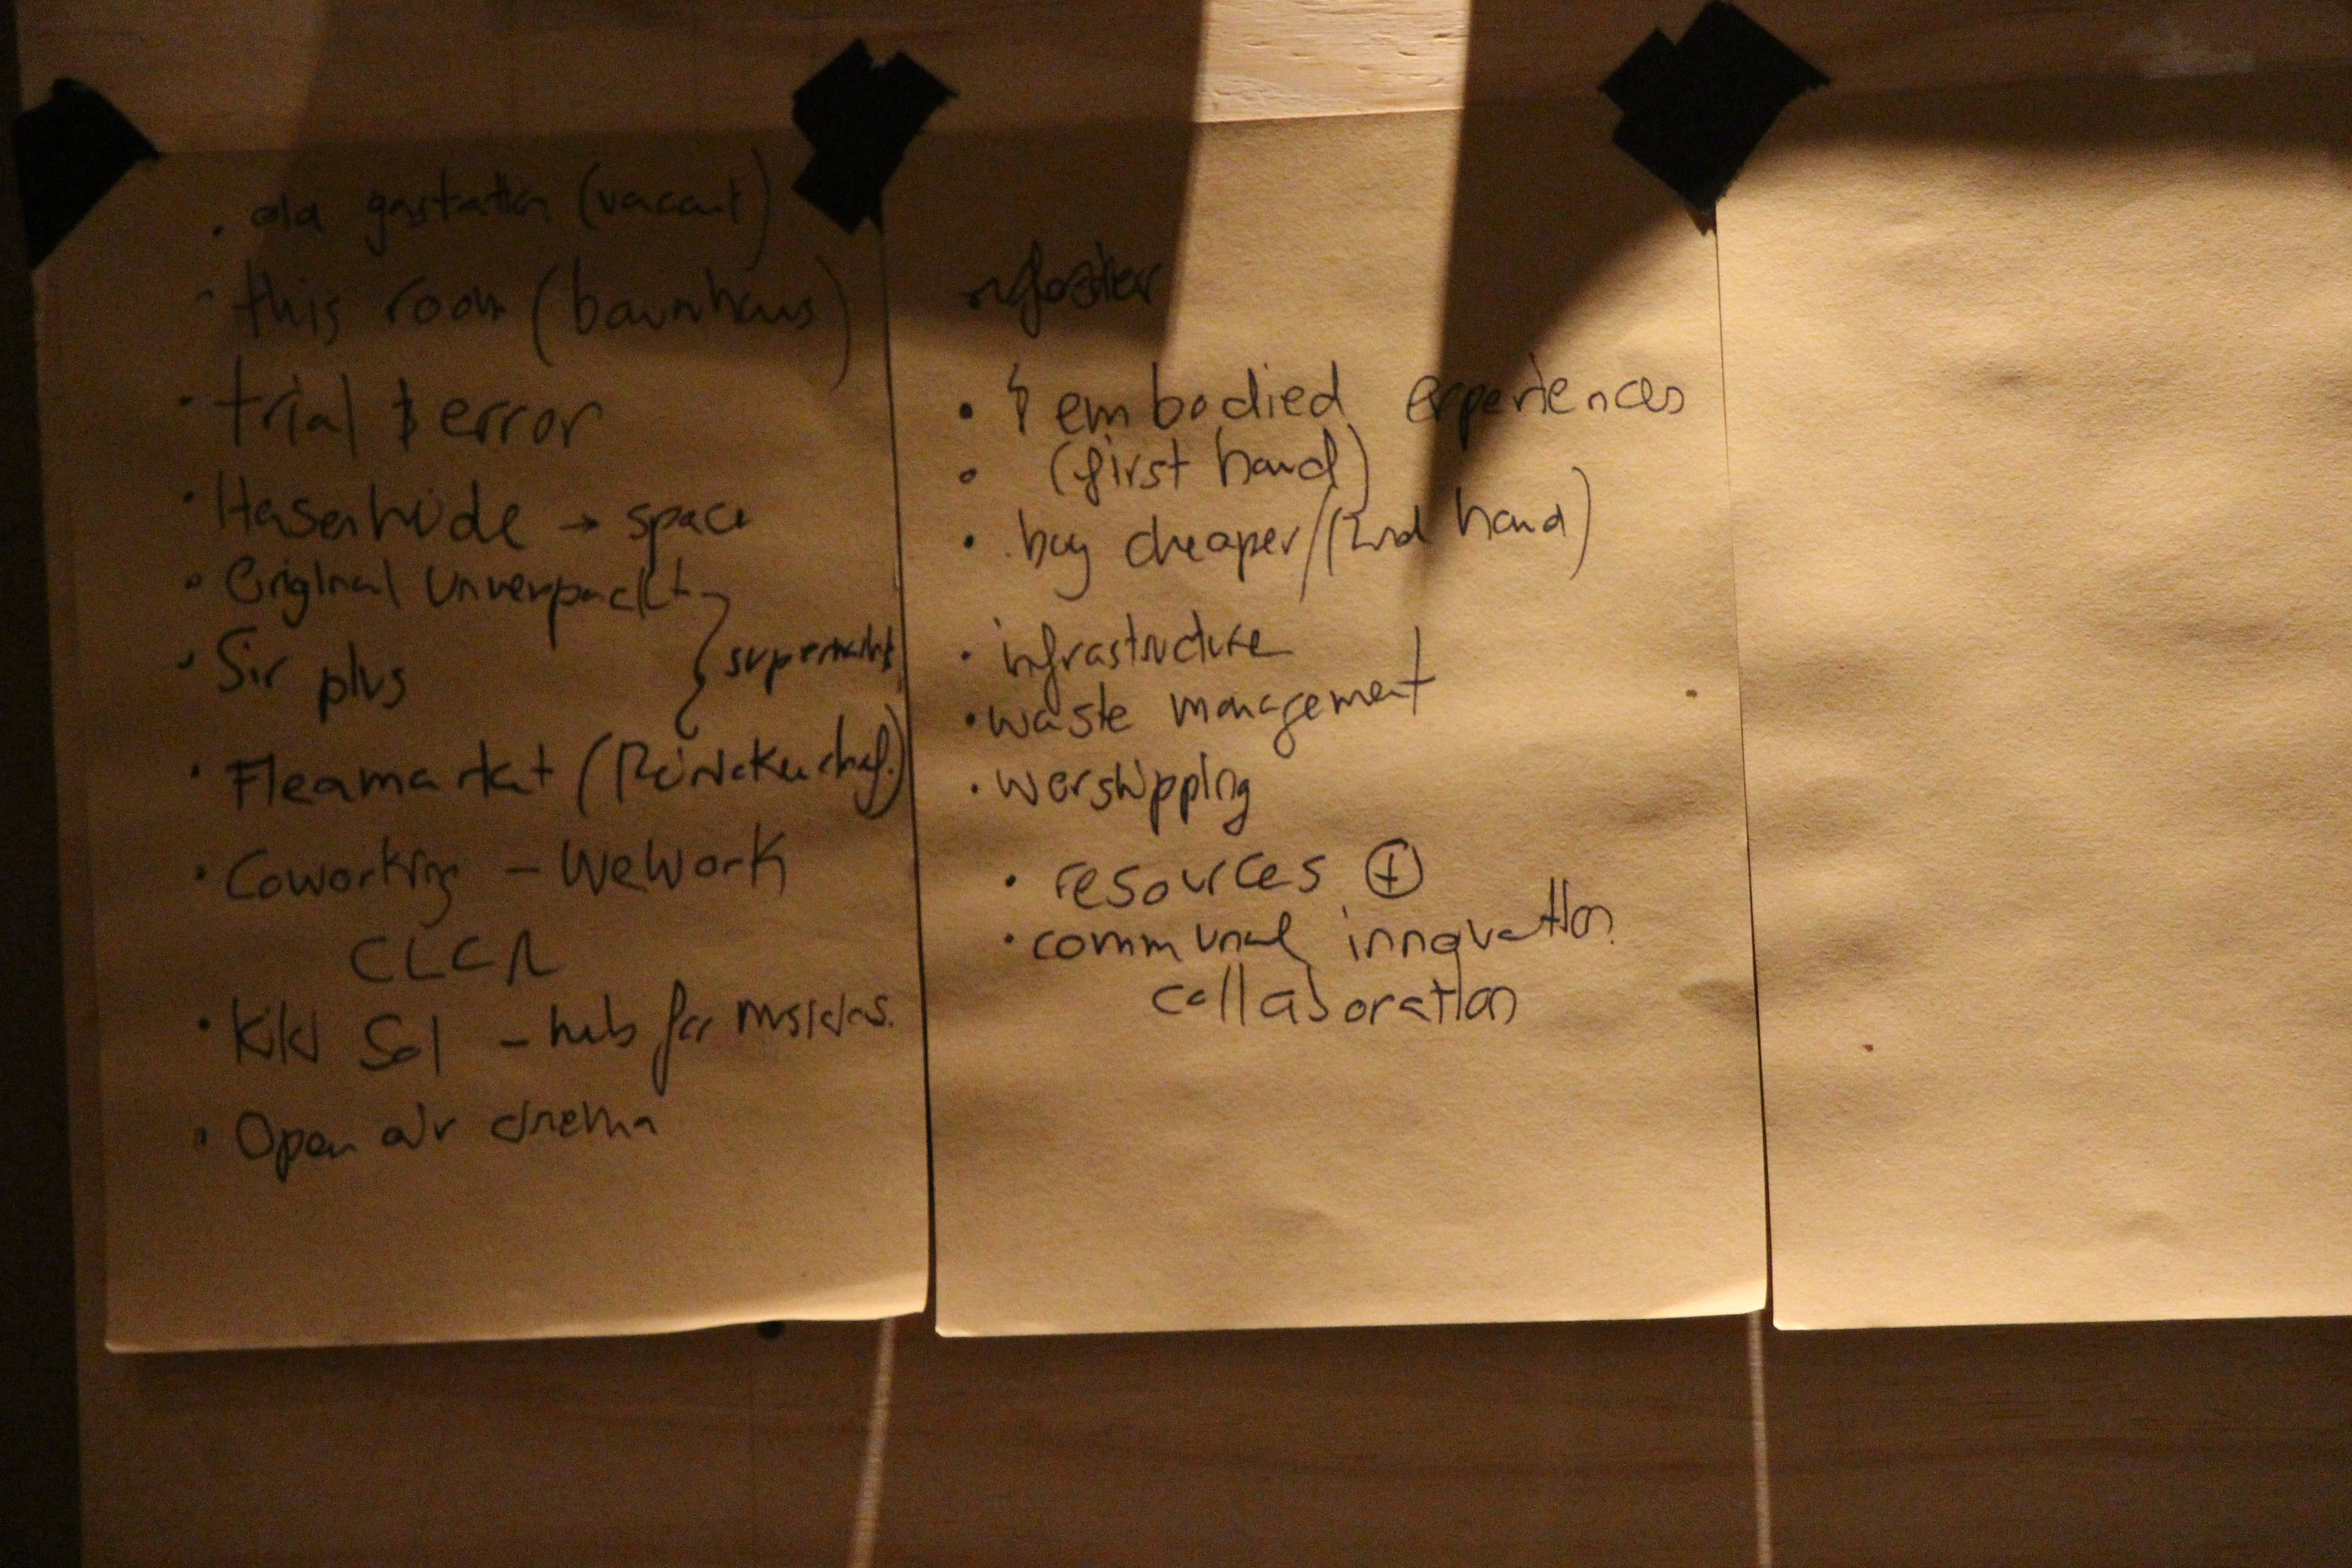 • old gastation (vacant)
• this room (baumhaus)
• trial & error
• Hasenheide → space
• Original Unverpackt
• Sir plus
supermarkt
• Fleamarket
• Coworking - WeWork
• Kiki Sol - hub for
• Open air cinema
• embodied experiences
• (first hand)
• buy cheaper/(2nd hand)
• infrastructure
• waste management
• worshipping
• resources +
• communal innovation
collaboration